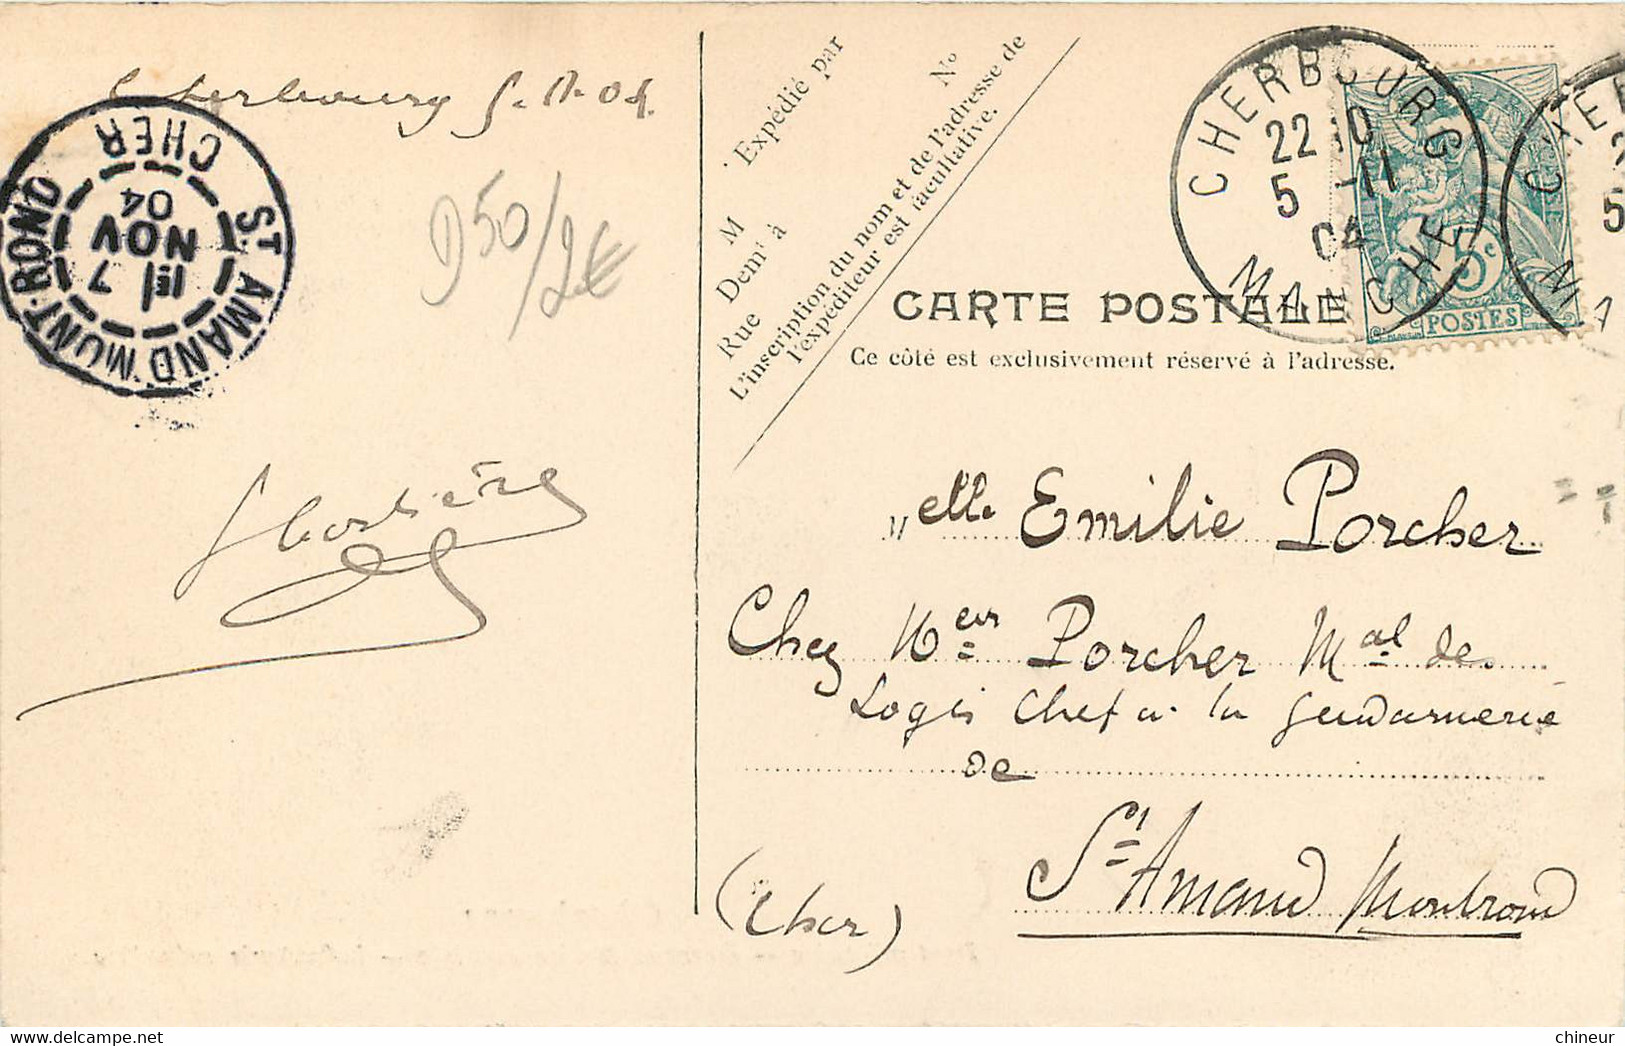 Cherbourg 5-11-04.
ST AMAND MONT-ROND
CHER
1E
7
NOV
04
950/2€
Expédié par
M
N°
Rue
Dem<sup>t</sup> à
L'inscription du nom et de l'adresse de
l'expéditeur est facultative.
CHERBOURG
22 10
5 -11
04
MANCHE
5c
POSTES
CHER
5
MA
CARTE POSTALE
Ce côté est exclusivement réservé à l'adresse.
Melle Emilie Porcher
Chez Mr Porcher Mal de
Logis Chef à la Gendarmerie
de
St Amand Montrond
(Cher)
chineur